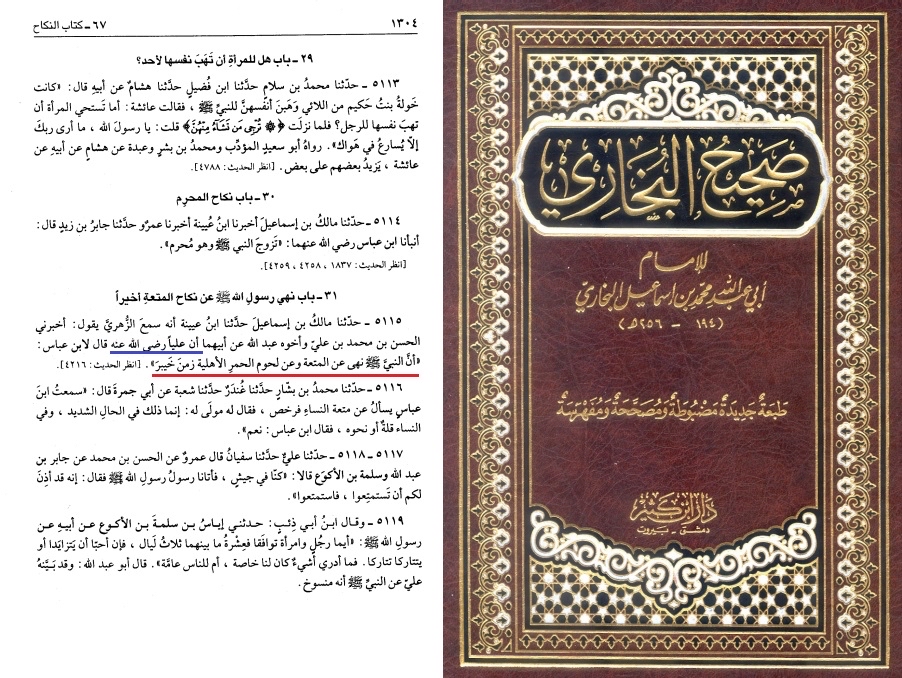 ١٣٠٤
٦٧ - كتاب النكاح
٢٩ - باب هل للمرأةِ أن تَهَبَ نفسها لأحد؟
٥١١٣ - حدّثنا محمدُ بن سلامٍ حدَّثنا ابن فُضيلٍ حدَّثنا هشامٌ عن أبيهِ قال: «كانت
خَولةُ بنتُ حَكيم من اللائي وَهَبنَ أنفُسهنَّ للنبيِّ ﷺ ، فقالت عائشة: أما تَستحي المرأة أن
تهبَ نفسها للرجل؟ فلما نزلَت ﴿۞ تُرْجِي مَن تَشَآءُ مِنْهُنَّ﴾ قلت: يا رسولَ الله ، ما أرى ربكَ
إلّا يُسارعُ في هَواك». رواهُ أبو سعيدٍ المؤدِّب ومحمدُ بن بشرٍ وعبدة عن هشامٍ عن أبيه عن
عائشة ، يَزيدُ بعضهم على بعض. [انظر الحديث: ٤٧٨٨].
٣٠ - باب نكاح المحرِم
٥١١٤ - حدّثنا مالكُ بن إسماعيلَ أخبرنا ابنُ عُيينة أخبرنا عمرٌو حدَّثنا جابرُ بن زيدٍ قال:
أنبأنا ابن عباس رضي الله عنهما: «تَزوجَ النبي ﷺ وهو مُحرم».
[انظر الحديث: ١٨٣٧ ، ٤٢٥٨ ، ٤٢٥٩].
٣١ - باب نهي رسولِ الله ﷺ عن نكاح المتعةِ أخيراً
٥١١٥ - حدّثنا مالكُ بن إسماعيلَ حدّثنا ابنُ عيينة أنه سمعَ الزُّهريَّ يقول: أخبرني
الحسن بن محمد بن عليّ وأخوه عبد الله عن أبيهما أن علياً رضي الله عنه قال لابن عباس:
«أنَّ النبيَّ ﷺ نهى عن المتعة وعن لحوم الحمرِ الأهلية زمنَ خَيبرَ». [انظر الحديث: ٤٢١٦].
٥١١٦ - حدّثنا محمدُ بن بشّار حدَّثنا غُندَرٌ حدَّثنا شعبة عن أبي جمرةَ قال: «سمعتُ ابنَ
عباس يسألُ عن متعة النساءِ فرخص ، فقال له مولًى له: إنما ذلك في الحالِ الشديد ، وفي
النساء قلةٌ أو نحوه ، فقال ابن عباس: نعم».
٥١١٧ ـ ٥١١٨ - حدّثنا عليٌّ حدَّثنا سفيانُ قال عمرٌو عن الحسن بن محمد عن جابر بن
عبد الله وسلمة بن الأكوَع قالا: «كنّا في جيشٍ ، فأتانا رسولُ رسولِ الله ﷺ فقال: إنه قد أذِنَ
لكم أن تَستمتِعوا ، فاستمتعوا».
٥١١٩ - وقال ابنُ أبي ذِئبٍ: حدثني إياسُ بن سلمةَ بن الأكوع عن أبيه عن
رسولِ الله ﷺ: «أيما رجُلٍ وامرأة توافَقا فعِشْرةُ ما بينهما ثلاثُ لَيال ، فإن أحبّا أن يَتزايَدا أو
يتتاركا تتاركا. فما أدري أشيءٌ كان لنا خاصة ، أم للناسِ عامَّة». قال أبو عبد الله: وقد بَـيَّنهُ
عليّ عن النبيِّ ﷺ أنه منسوخ.
صَحِيحُ البُخَارِي
للإمام
أبي عبد الله محمد بن إسماعيل البخاري
(١٩٤ - ٢٥٦هـ)
طبعة جديدة مضبوطة ومصححة ومفهرسة
دار ابن كثير
دمشق - بيروت